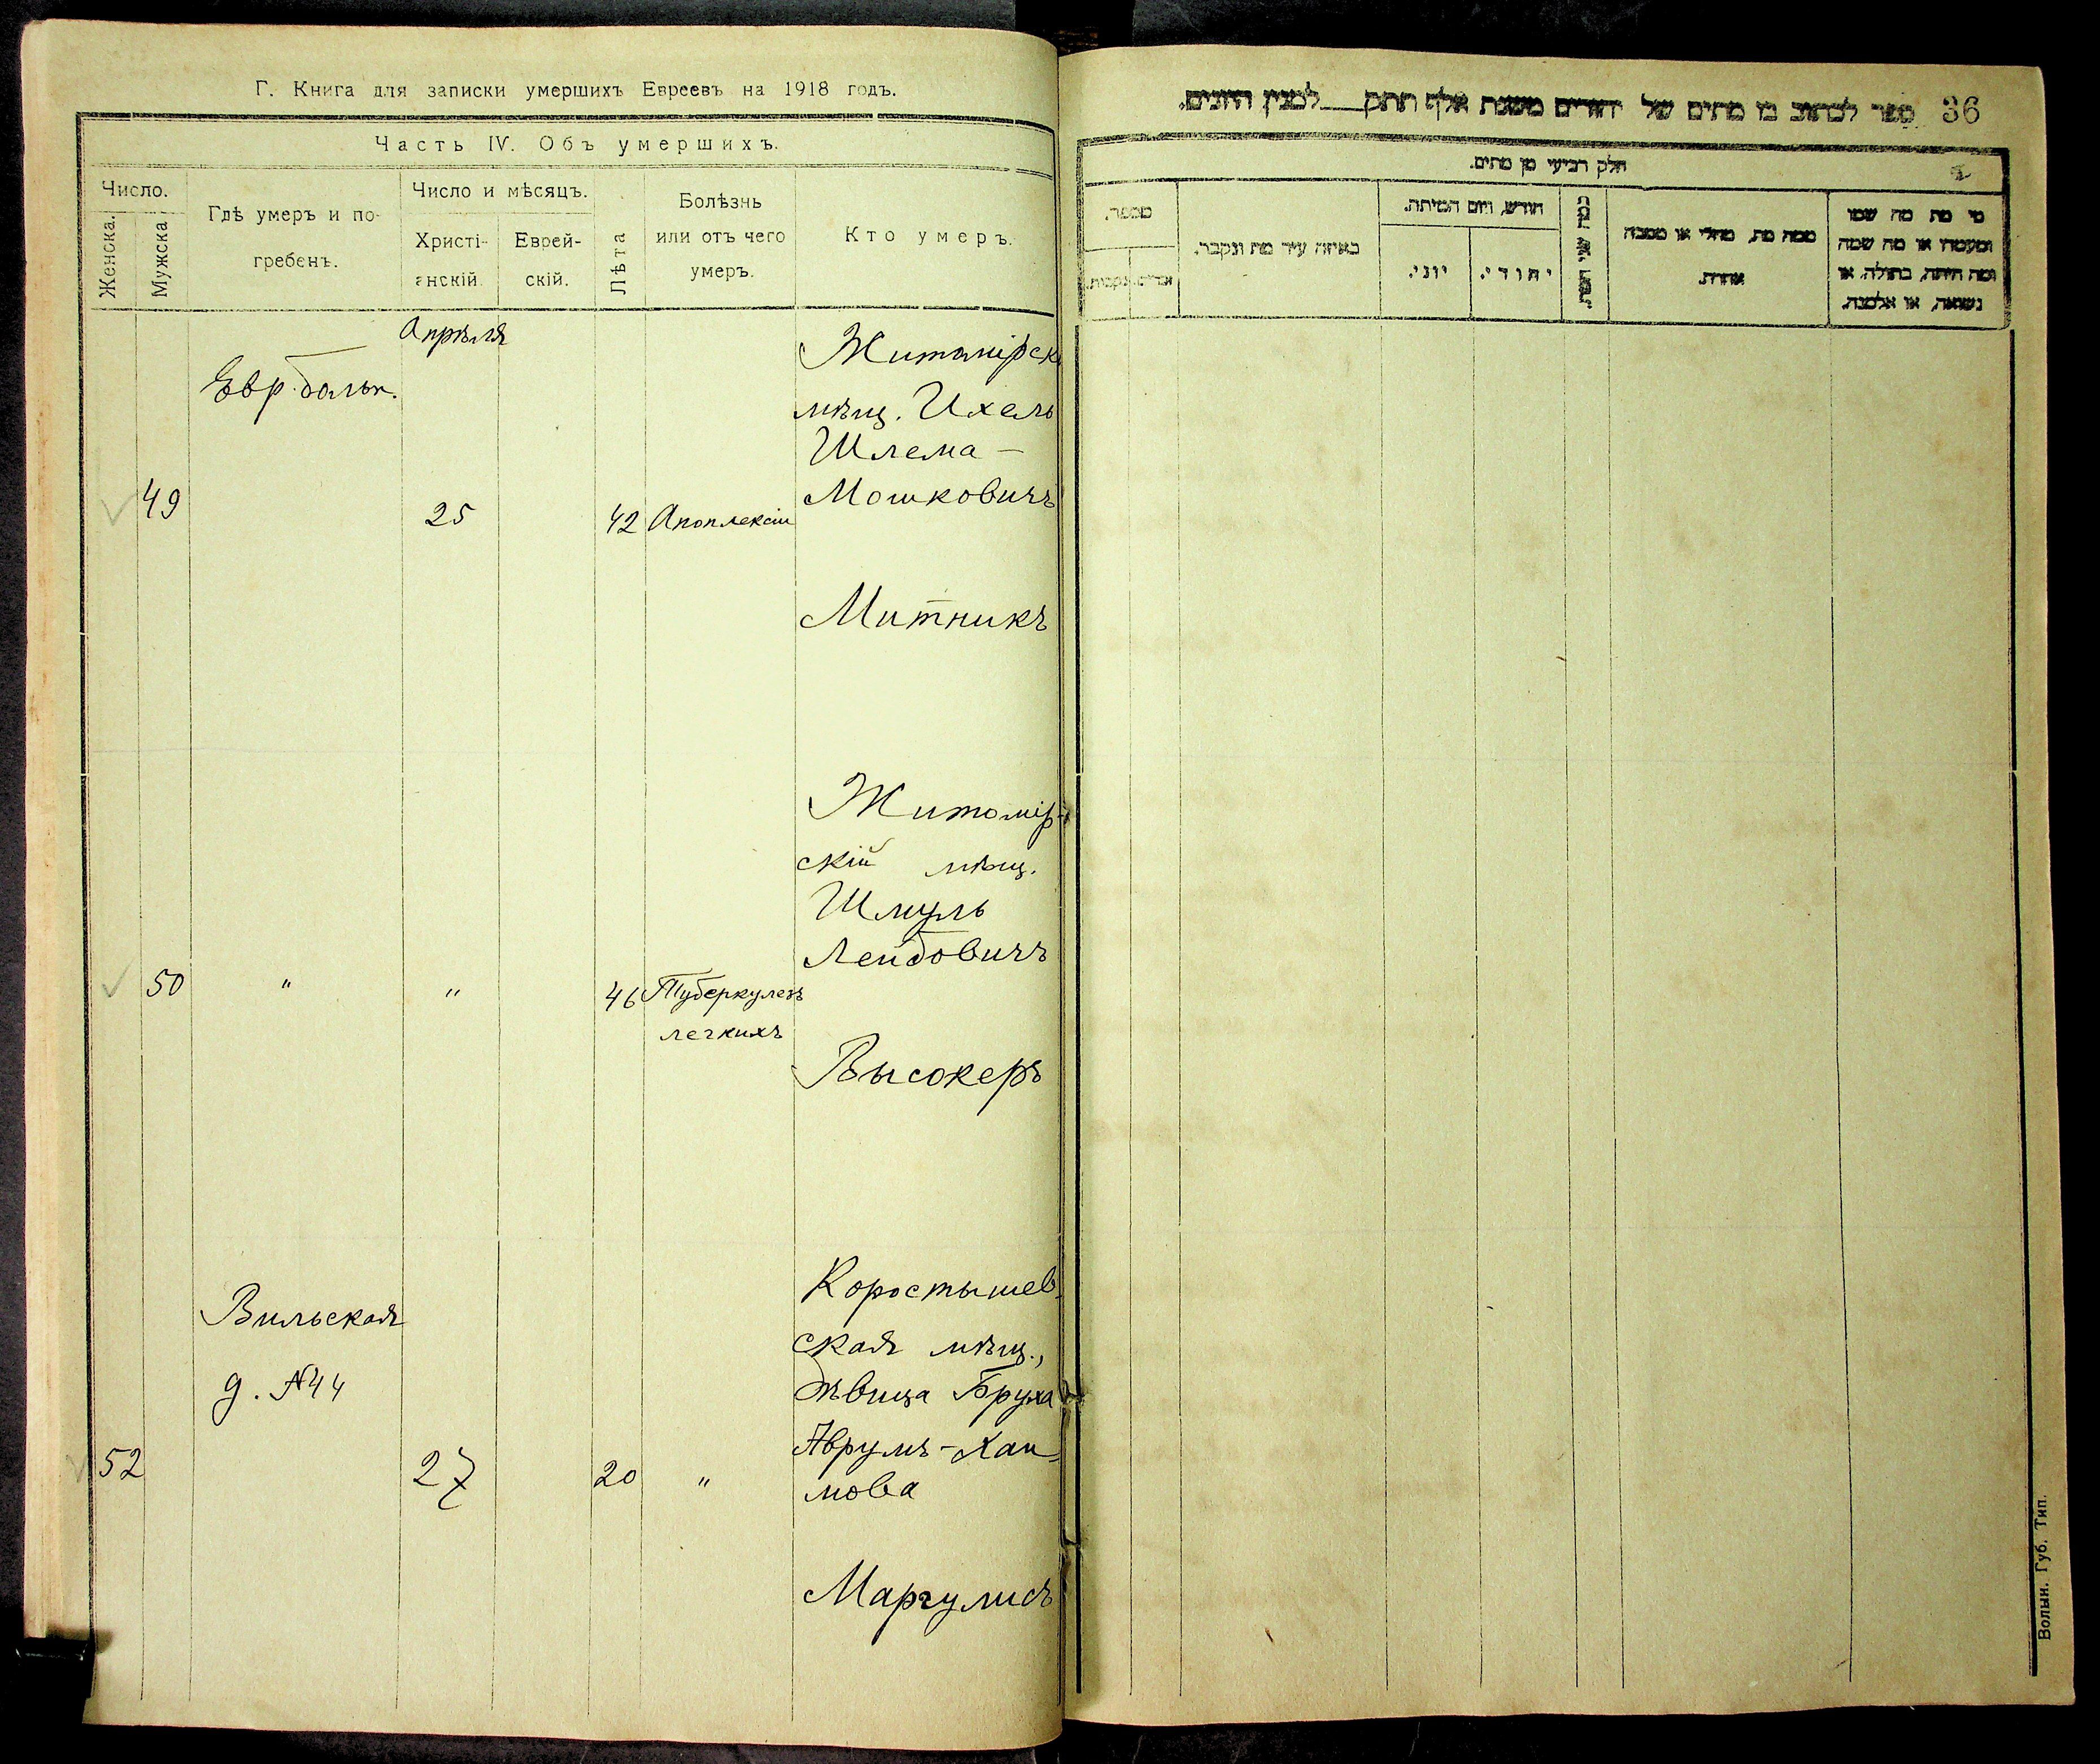 Г. Книга для записки умершихъ Евреевъ на 1918 годъ.
Часть IV. Объ умершихъ.
Число.
Женска.
Мужска.
Гдѣ умеръ и по-
гребенъ.
Число и мѣсяцъ.
Христі-
анскій.
Еврей-
скій.
Лѣта
Болѣзнь
или отъ чего
умеръ.
Кто умеръ.
Апрѣля
Евр. больн.
49
25
42
Апоплексіи
Житомірск
мѣщ. Ихель
Шлема-
Мошковичъ
Митникъ
50
"
"
46
Туберкулезъ
легкихъ
Житомір-
скій мѣщ.
Шмуль
Лейбовичъ
Высокеръ
Вильская
д. №44
52
27
20
"
Коростышев-
ская мѣщ.,
дѣвица Бруха
Аврумъ-Хаи-
мова
Маргулисъ
36
ספר לכתוב בו מתים של יהודים משנת אלף תתק לכמנין היונים.
חלק רביעי מן מתים.
מספר.
באיזה עיר מת ונקבר.
חודש, ויום המיתה.
יוני.
יהודי.
כמה שני המת.
ממה מת, מחלי או מסבה
אחרת.
מי מת מה שמו
ומעמדו או מה שמה
ומה היתה, בתולה, או
נשואה, או אלמנה.
Волын. Губ. Тип.